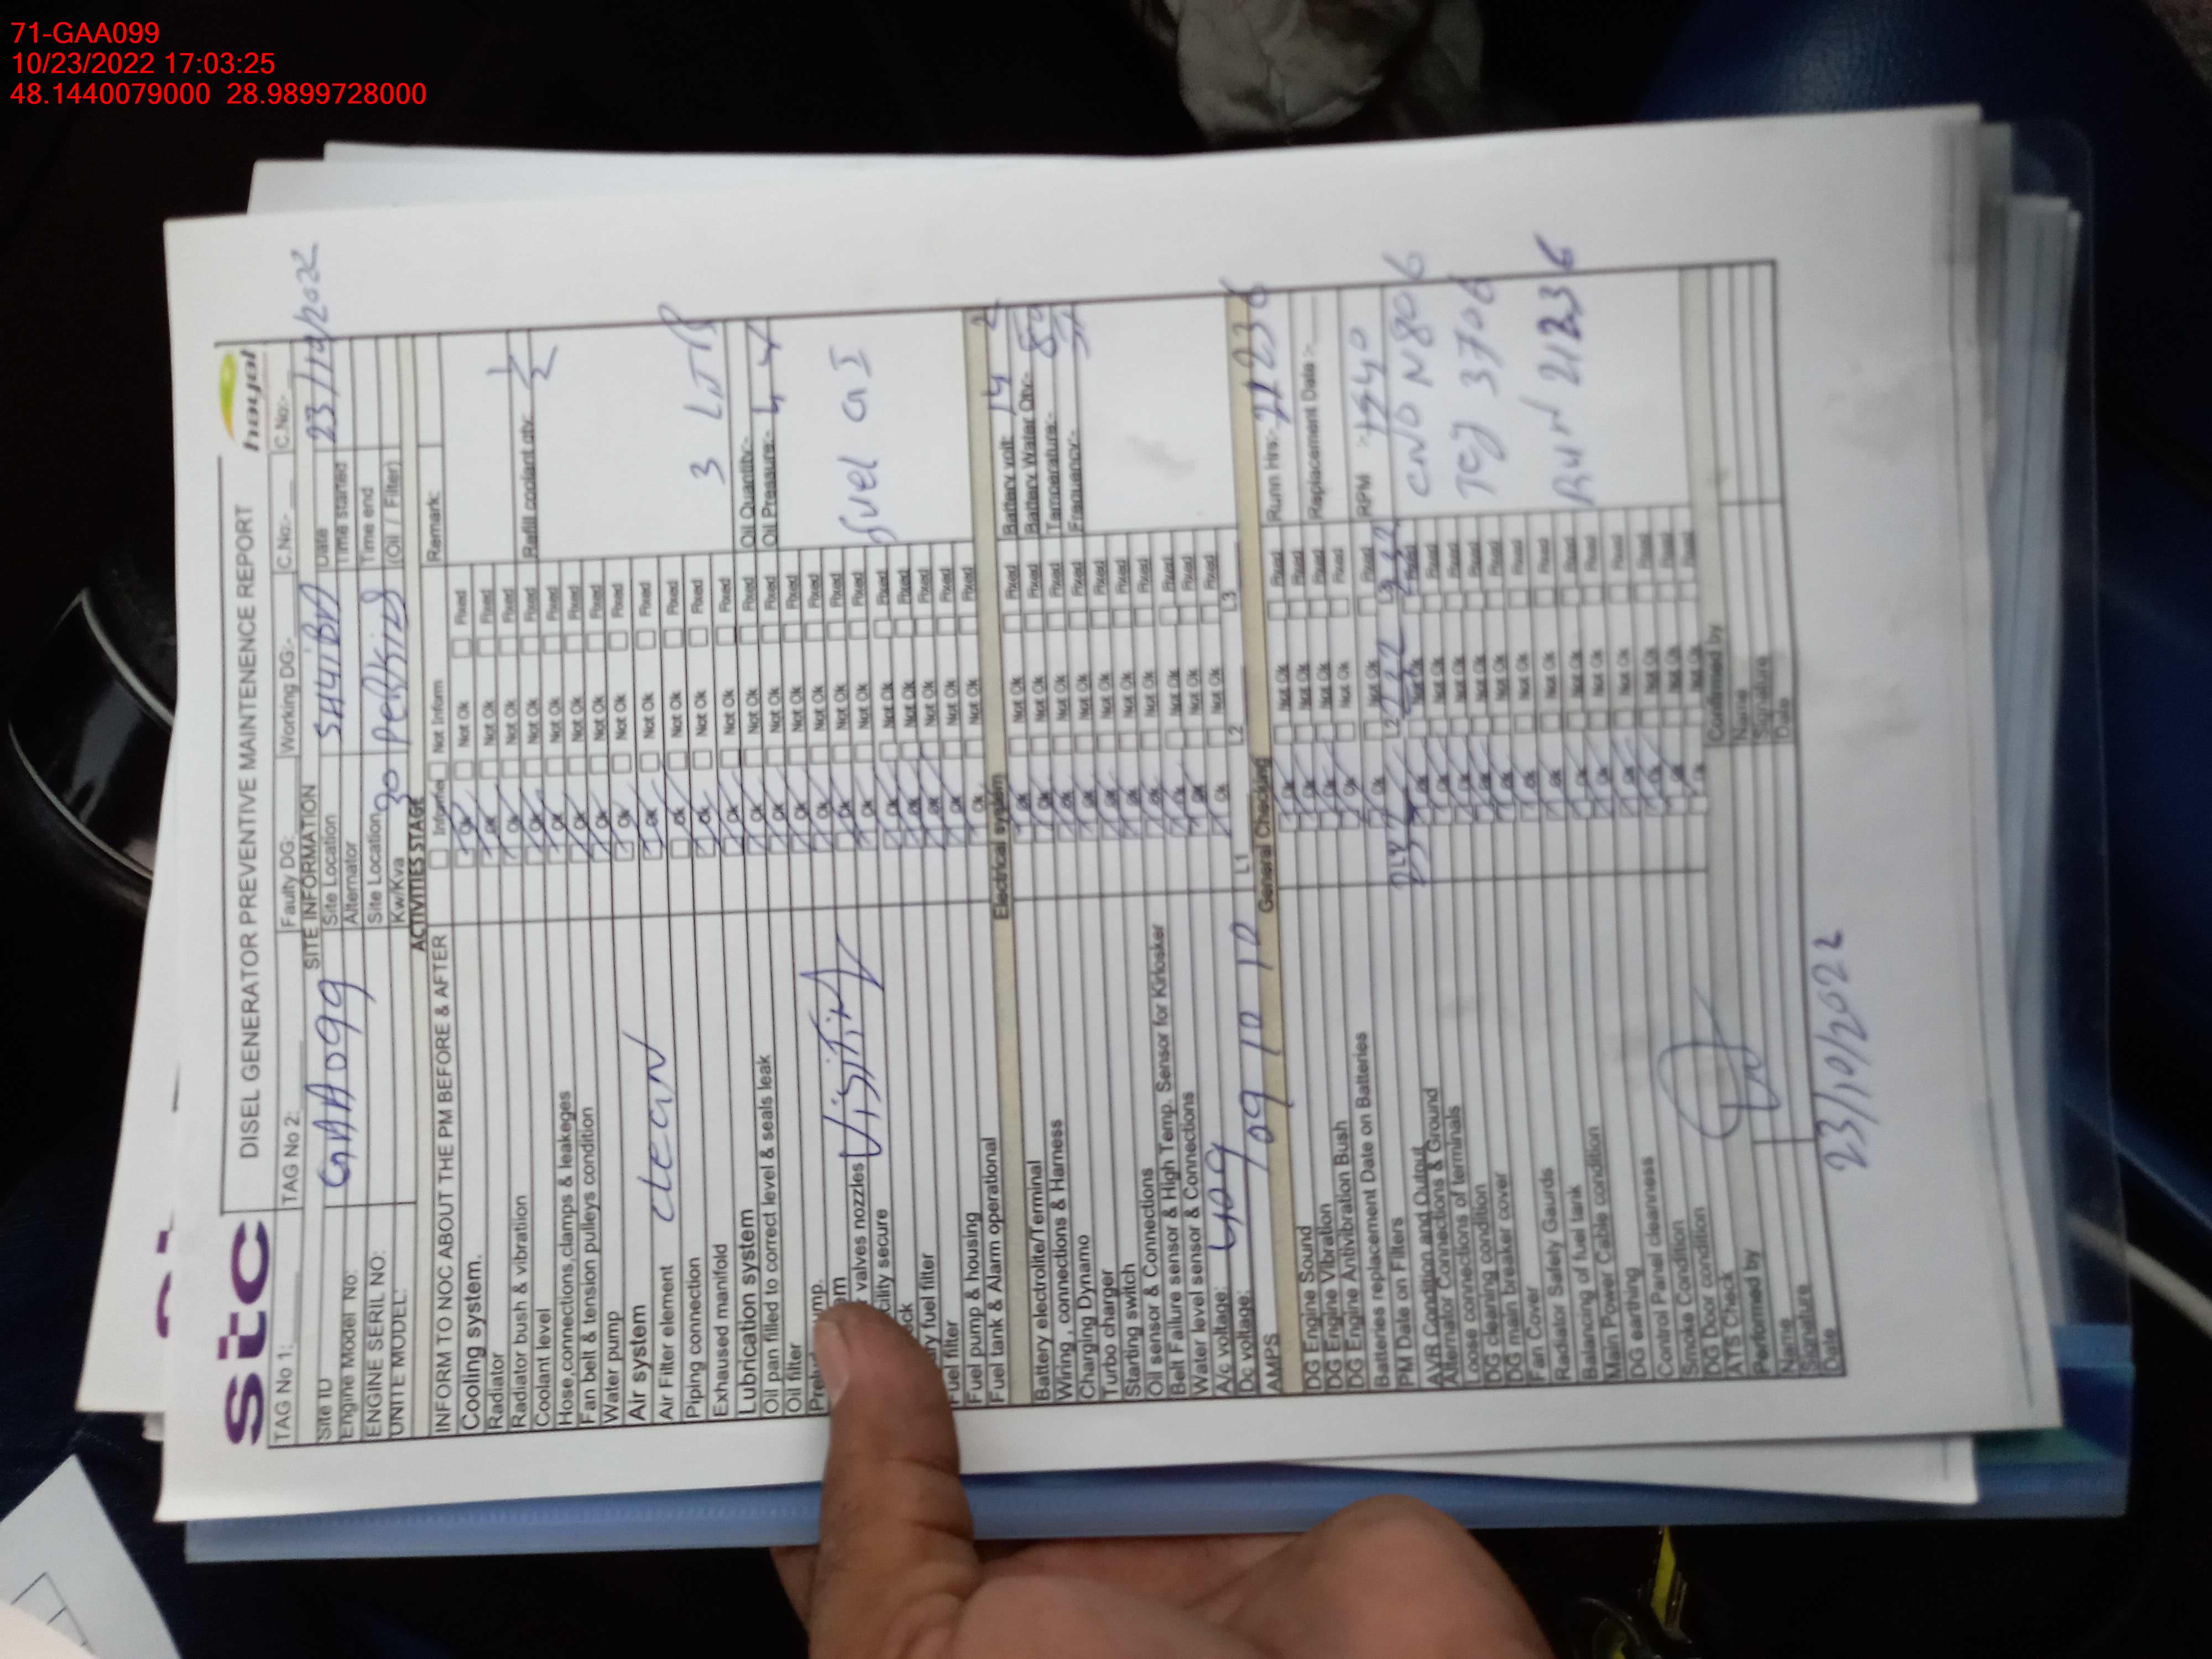 71-GAA099
10/23/2022 17:03:25
48.1440079000 28.9899728000
stc
DISEL GENERATOR PREVENTIVE MAINTENENCE REPORT
hayat
TAG No 1: TAG No 2: Faulty DG: Working DG:- C.No:- C.No:-
SITE INFORMATION
Site ID GAA099 Site Location SHUIBA Date 23/10/2022
Engine Model No: Alternator Time started
ENGINE SERIL NO: Site Location Time end
UNITE MODEL: Kw/Kva 30 Perkins (Oil / Filter)
ACTIVITIES STAGE
INFORM TO NOC ABOUT THE PM BEFORE & AFTER Informe Not Inform Remark:
Cooling system. Ok Not Ok Fixed
Radiator Ok Not Ok Fixed
Radiator bush & vibration Ok Not Ok Fixed
Coolant level Ok Not Ok Fixed Refill coolant qty. 1/2
Hose,connections,clamps & leakeges Ok Not Ok Fixed
Fan belt & tension pulleys condition Ok Not Ok Fixed
Water pump Ok Not Ok Fixed
Air system Ok Not Ok Fixed
Air Filter element clean Ok Not Ok Fixed
Piping connection Ok Not Ok Fixed
Exhaused manifold Ok Not Ok Fixed 3 LTR
Lubrication system Ok Not Ok Fixed Oil Quantity:-
Oil pan filled to correct level & seals leak Ok Not Ok Fixed Oil Pressure:-
Oil filter Ok Not Ok Fixed
ump. Ok Not Ok Fixed
valves nozzles Visiting Ok Not Ok Fixed
cility secure Ok Not Ok Fixed Fuel
Ok Not Ok Fixed
ry fuel filter Ok Not Ok Fixed
Fuel filter Ok Not Ok Fixed
Fuel pump & housing Ok Not Ok Fixed
Fuel tank & Alarm operational Ok Not Ok Fixed
Electrical system
Battery electrolite/Terminal Ok Not Ok Fixed Battery volt: 14
Wiring , connections & Harness Ok Not Ok Fixed Battery Water Qty:-
Charging Dynamo Ok Not Ok Fixed Temperature:-
Turbo charger Ok Not Ok Fixed Frequency:-
Starting switch Ok Not Ok Fixed
Oil sensor & Connections Ok Not Ok Fixed
Belt Failure sensor & High Temp. Sensor for Kirlosker Ok Not Ok Fixed
Water level sensor & Connections Ok Not Ok Fixed
A/c voltage: 409 Ok Not Ok Fixed
Dc voltage: L1 L2 L3
AMPS 09 10 10
General Checking
DG Engine Sound Ok Not Ok Fixed Runn Hrs:- 21236
DG Engine Vibration Ok Not Ok Fixed
DG Engine Antivibration Bush Ok Not Ok Fixed Replacement Date :-
Batteries replacement Date on Batteries Ok Not Ok Fixed
PM Date on Filters Ok Not Ok Fixed RPM :- 1540
AVR Condition and Output
Alternator Connections & Ground Ok Not Ok Fixed
Loose connections of terminals Ok Not Ok Fixed
DG cleaning condition Ok Not Ok Fixed
DG main breaker cover Ok Not Ok Fixed
Fan Cover Ok Not Ok Fixed
Radiator Safety Gaurds Ok Not Ok Fixed Run 21236
Balancing of fuel tank Ok Not Ok Fixed
Main Power Cable condition Ok Not Ok Fixed
DG earthing Ok Not Ok Fixed
Control Panel cleanness Ok Not Ok Fixed
Smoke Condition Ok Not Ok Fixed
DG Door condition Ok Not Ok Fixed
ATS Check
Performed by Confirmed by
Name Name
Signature Signature
Date 23/10/2022 Date